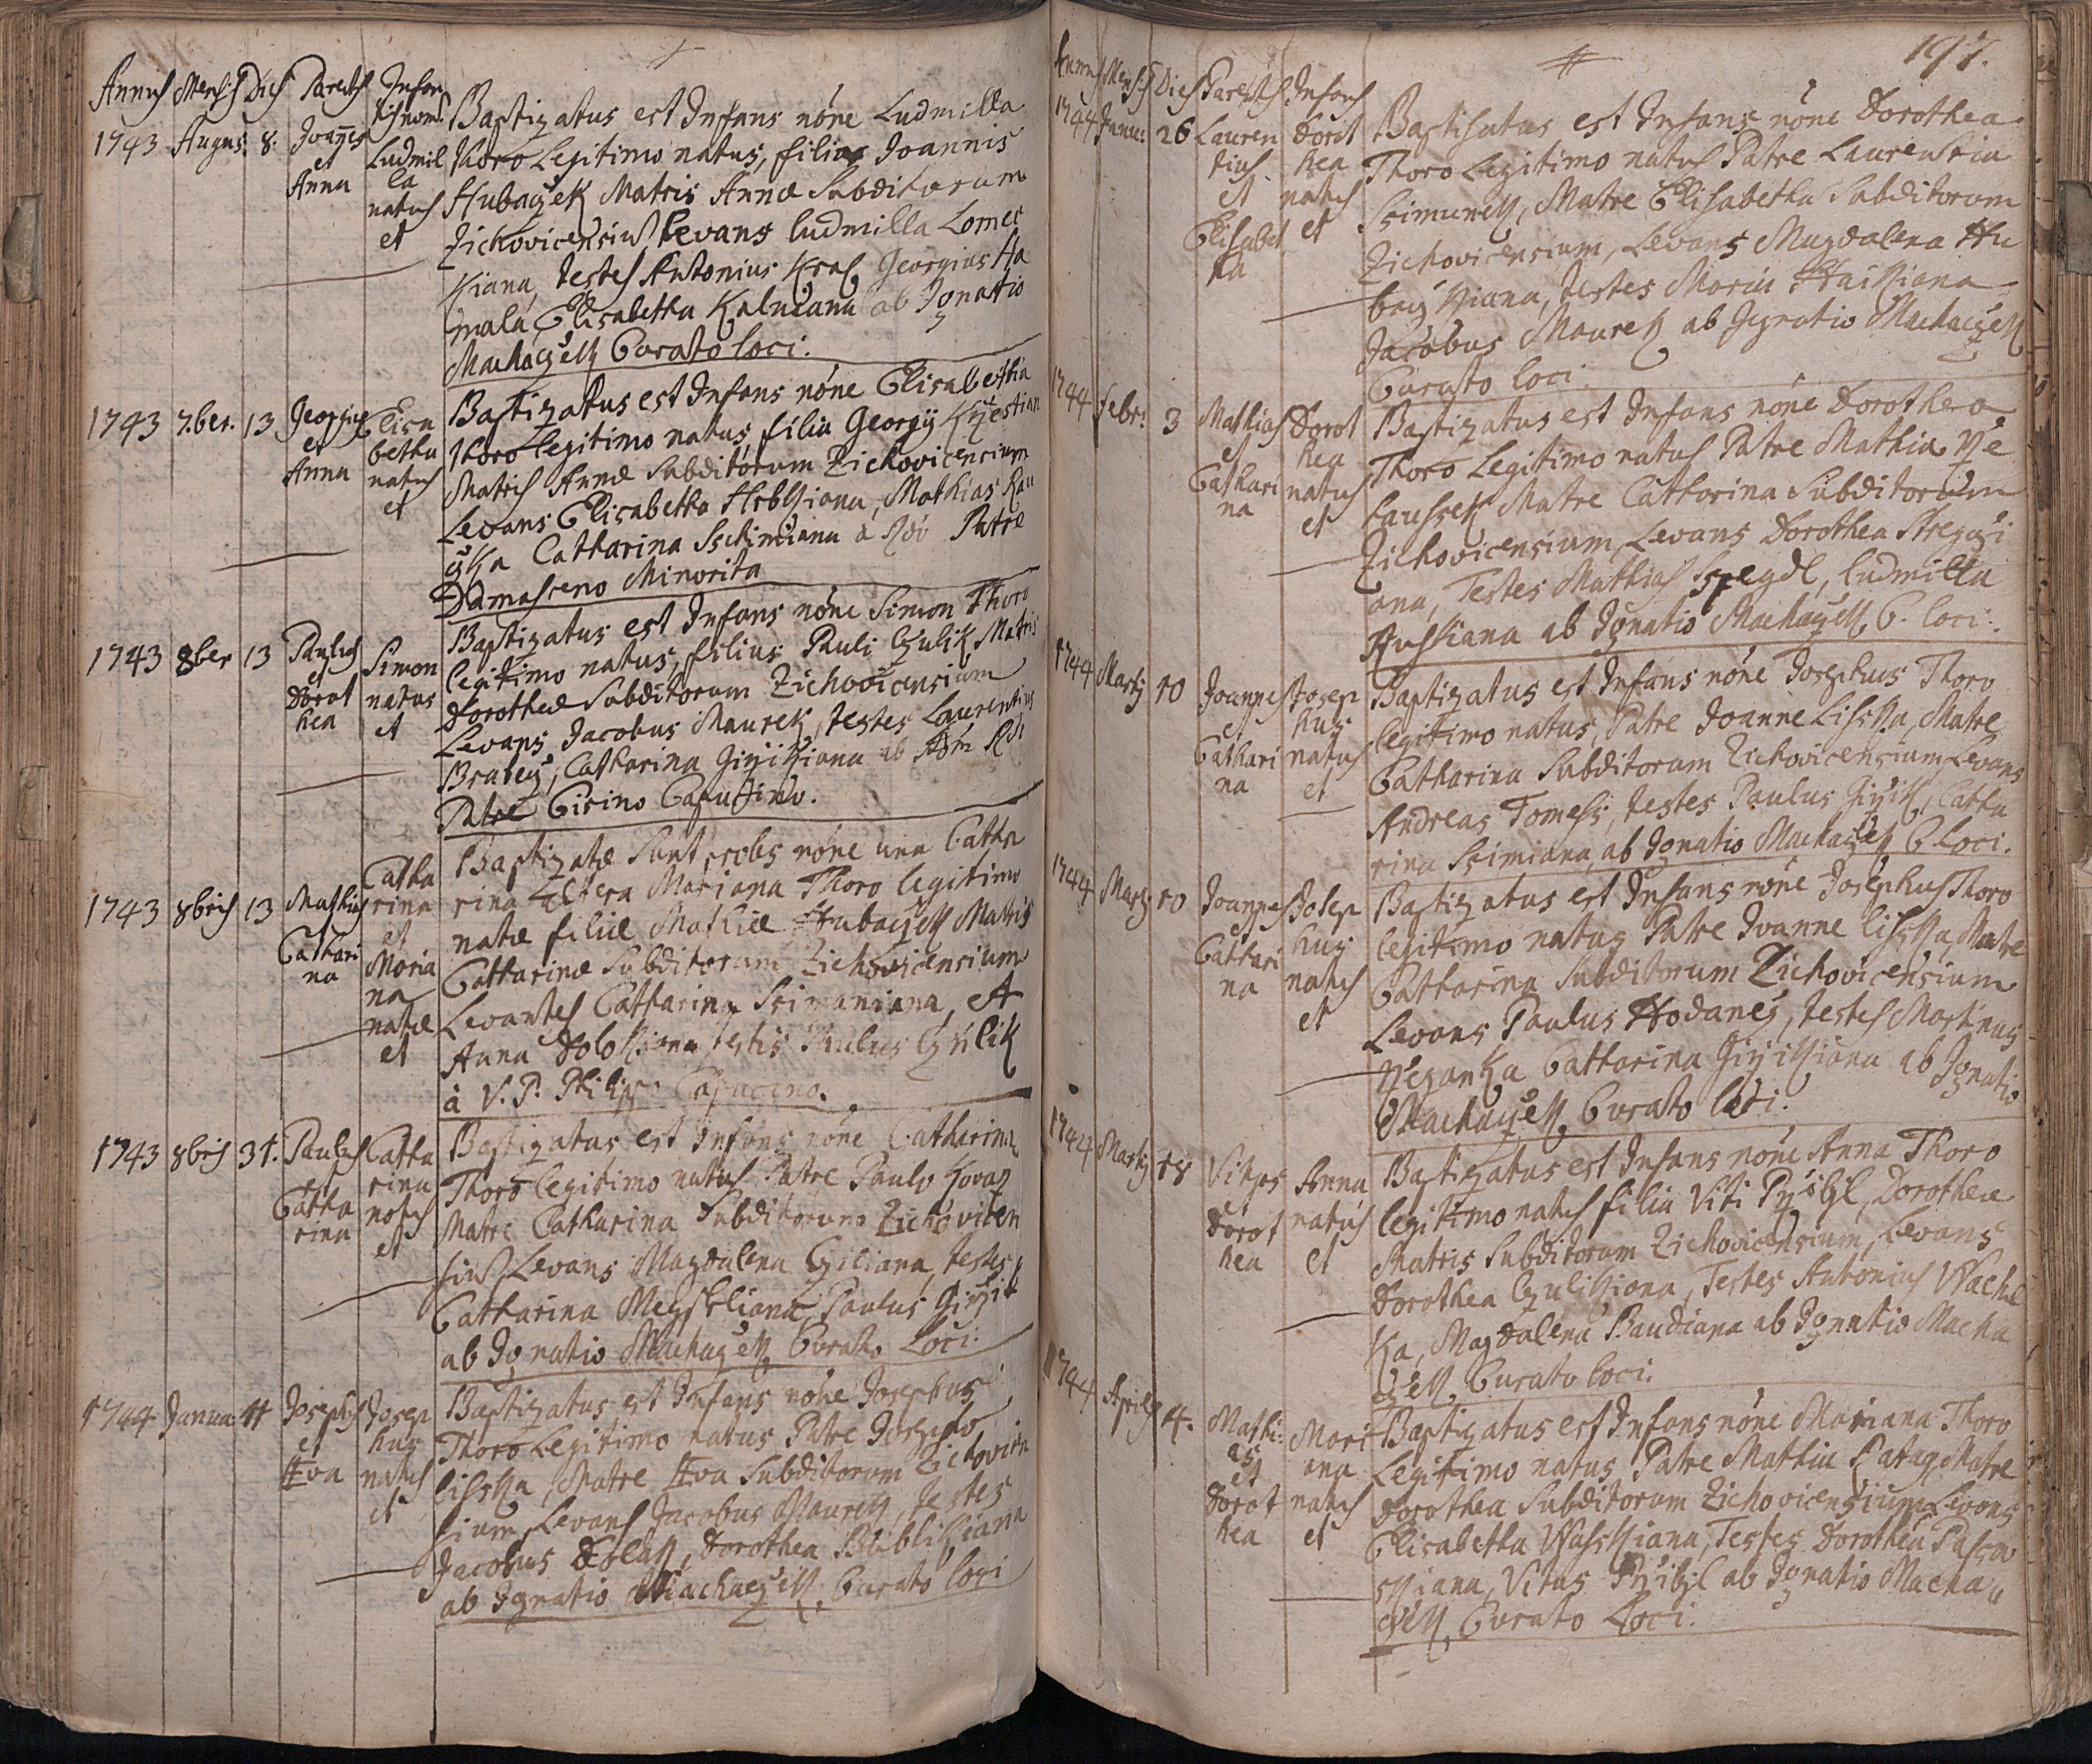 Annus Mensis Dies Parentes Infan
tis nom.
1743 Augus: 8. Joannes et Anna
Ludmil
la
natus
et
Baptizatus est Infans nóne Ludmilla
Thoro Legitimo natus, filia Joannis
Hubaczek Matris Annæ Subditorum
Zichovicensium Levans Ludmilla Lomec
Kiana, testes Antonius Kral Georgius Ha
mala, Elisabetha Kalnciana ab Ignatio
Machaczek Curato loci.
1743 7.ber. 13 Georgius et Anna
Elisa
betha
natus
et
Baptizatus est Infans nóne Elisabetha
Thoro Legitimo natus, filia Georgÿ
Matris Annæ Subditorum Zichovicensium
Levans Elisabetha Hrbkiana, Mathias Kau
czka Catharina Sschimiana à Rdo Patre
Damasceno Minorita
1743 8ber 13 Paulus et Dorot
hea
Simon
natus
et
Baptizatus est Infans nóne Simon Thoro
legitimo natus, filius Pauli Czulik Matris
Dorotheæ Subditorum Zichovicensium
Levans Jacobus Maurek, testes Laurentius
Bratecz, Catharina Giczikiana ab Adm Rdo
Patre Cirino Capucino.
1743 8bris 13 Mathias
Cathari
na
Catha
rina
et
Maria
na
natæ
et
Baptizatæ Sunt proles nóne una Catha
rina Altera Mariana Thoro legitimo
natæ filiæ Mathiæ Hubaczek Matris
Catharinæ Subditorum Zichovicensium
Levantes Catharina Srimaniana, et
Anna Dolokiana testis Paulus Czulik
à V. P. Philippo Capucino.
1743 8bris 31. Paulus et
Catha
rina
Catha
rina
natus
et
Baptizatus est Infans nóne Catharina
Thoro legitimo natus Patre Paulo Kovarz
Matre Catharina Subditorum Zichovicen
sium Levans Magdalena Cziliana, testes
Catharina Meysrliana Paulus Giczik
ab Ignatio Machaczek Curato Loci.
1744 Janua: 11 Josephus
et
Eva
Josep
hus
natus
et
Baptizatus est Infans nóne Josephus
Thoro Legitimo natus Patre Josepho
Lisska, Matre Eva Subditorum Zichovicen
sium, Levans Jacobus Maurek, testes
Jacobus Dolak, Dorothea Bublikiana
ab Ignatio Machaczek Curato loci
197.
Annus Mensis Dies Parentes Infans
1744 Janu: 26 Lauren
tius
et
Elisabet
ha
Dorot
hea
natus
et
Baptisatus est Infans nóne Dorothea
Thoro Legitimo natus Patre Laurentio
Srimunek, Matre Elisabetha Subditorum
Zichovicensium, Levans Magdalena Hu
baczkiana, testes Maria Haikiana
Jacobus Maurek ab Ignatio Machaczek
Curato loci.
1744 Febr: 3 Mathias
et
Cathari
na
Dorot
hea
natus
et
Baptizatus est Infans nóne Dorothea
Thoro Legitimo natus Patre Mathia Rze
haussek Matre Catharina Subditorum
Zichovicensium, Levans Dorothea Stregczi
ana, Testes Mathias Szegdl, Ludmilla
Husskiana ab Ignatio Machaczek C. loci.
1744 Martÿ 10 Joannes
et
Cathari
na
Josep
hus
natus
et
Baptizatus est Infans nóne Josephus Thoro
legitimo natus, Patre Joanne Lisska, Matre
Catharina Subditorum Zichovicensium Levans
Andreas Tomess, testes Paulus Giczik, Catha
rina Srimiana, ab Ignatio Machaczek C. Loci.
1744 Martÿ 10 Joannes
et
Cathari
na
Josep
hus
natus
et
Baptizatus est Infans nóne Josephus Thoro
legitimo natus Patre Joanne Lisska, Matre
Catharina Subditorum Zichovicensium
Levans Paulus Hodanes, testes Martinus
Rzezanka Catharina Giczikiana ab Ignatio
Machaczek Curato loci.
1744 Martÿ 18 Vitus
et
Dorot
hea
Anna
natus
et
Baptizatus est Infans nóne Anna Thoro
legitimo natus filia Viti Przibyl, Dorothea
Matris Subditorum Zichovicensium, Levans
Dorothea Czulikiana, Testes Antonius Wachl
ka, Magdalena Baudiana ab Ignatio Macha
czek Curato loci.
1744 Aprilis 4. Mathi
as
et
Dorot
hea
Mari
ana
natus
et
Baptizatus est Infans nóne Mariana Thoro
Legitimo natus, Patre Mathia Ratay Matre
Dorothea Subditorum Zichovicensium Levans
Elisabetha Wasskiana, Testes Dorothea Passa
skiana, Vitus Przibyl ab Ignatio Macha
czek Curato Loci.